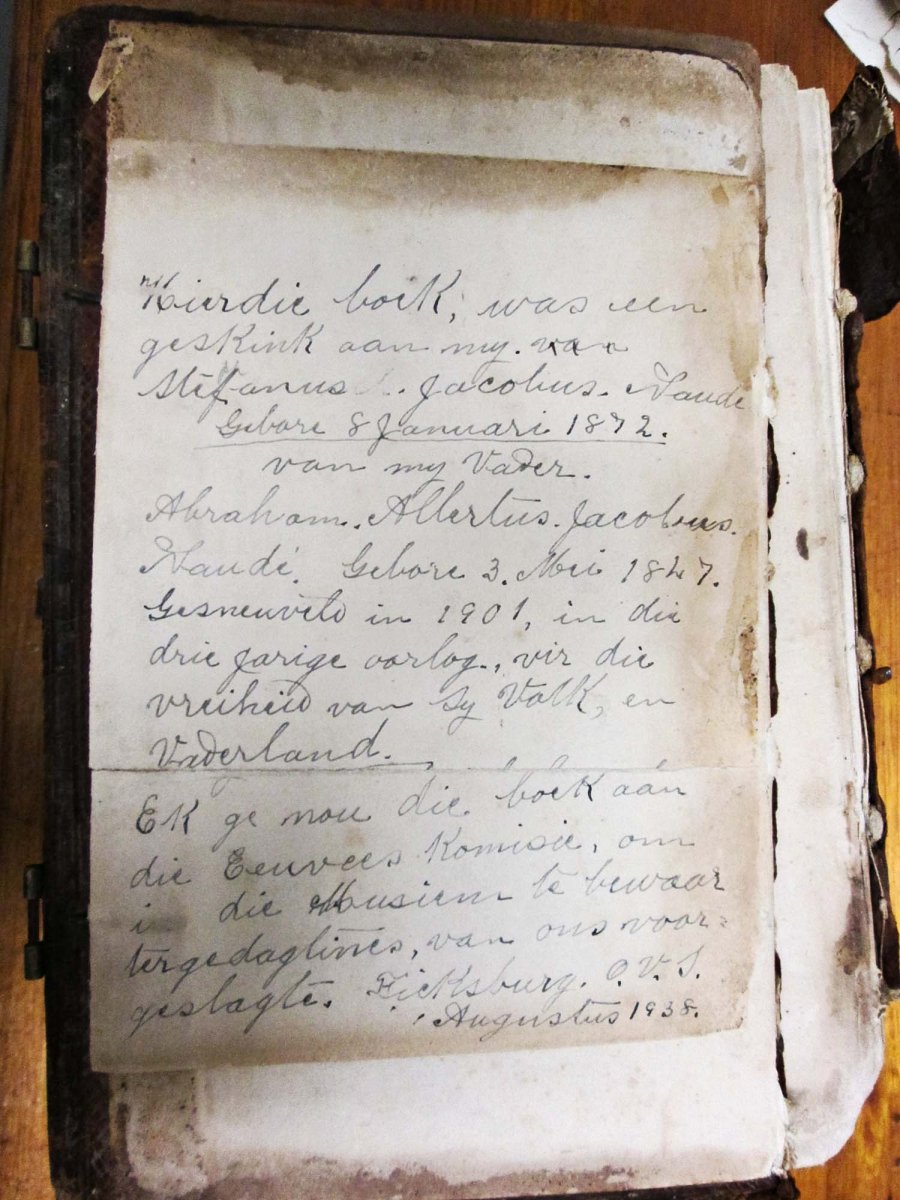 Hierdie boek, was een
geskink aan my. van
Stefanus. Jacobus. Naude
Gebore 8 Januari 1872.
van my Vader.
Abraham. Albertus. Jacobus.
Naudé. Gebore 3. Mei 1847.
Gesneuveld in 1901, in die
drie Jarige oorlog, vir die
vreiheid van sy Volk, en
Vaderland.
Ek ge nou die boek aan
die Eeuvees Komisie, om
die Musiem te bewaar
tergedagtines, van ons voor=
geslagte. Ficksburg. O.V.S.
Augustus 1938.